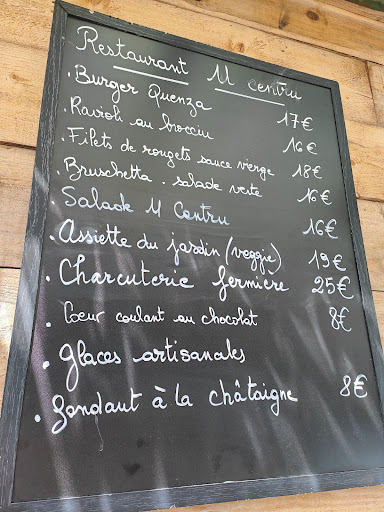 Restaurant U Centru
. Burger Quenza 17€
. Ravioli au brocciu 16€
. Filets de rougets sauce vierge 18€
. Bruschetta . salade verte 16€
. Salade U Centru 16€
. Assiette du jardin (veggie) 19€
. Charcuterie fermière 25€
. Coeur coulant au chocolat 8€
. Glaces artisanales
. Fondant à la châtaigne 8€